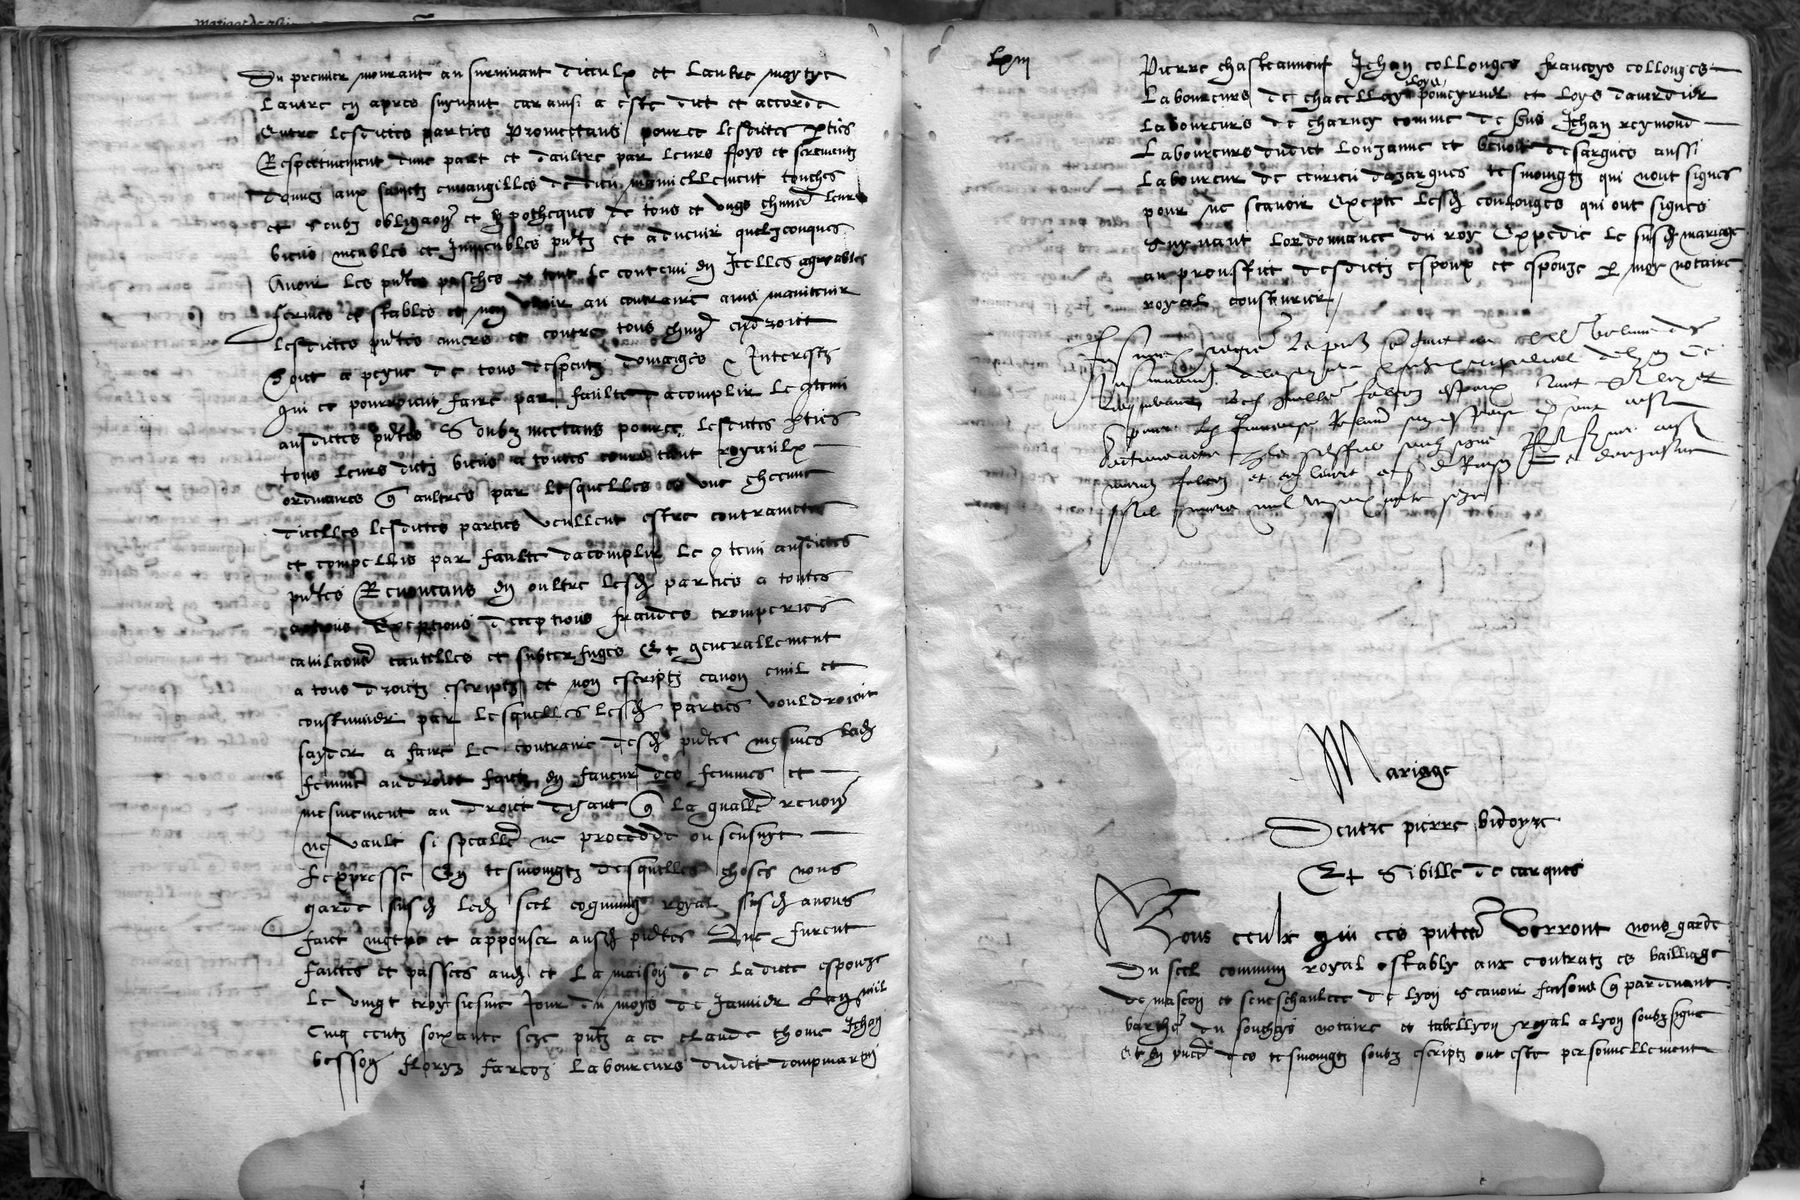 Du premier mourant au survivant diceulx et laultre moytye
lannee en apres suyvant car ainsi a este dict et accorde
Entre lesdictes parties Promettans pource lesdictes pties
Respectivement dune part et daultre par leurs foys et sermentz
donnez aux sainctz euvangilles de dieu manuellement touches
et soubz obligaon et ypotheques de tous et ungs chuned leurs
biens meubles et immeubles pntz et advenir quelzconques
Avoir les pntes pasches et tout le contenu en Icelles agreables
fermes et stables et non venir au contraire ains maintenir
lesdictes pntes envers et contre tous chun endroict
Soit a peyne de tous despentz domaiges & Interestz
qui ce pourroient faire par faulte dacomplir le 9tenu
ausdictes pntes Soubzmectans pource lesdictes pties
tous leurs dictz biens a toutes cours tant royaulx
ordinaires q aultres par lesquelles et une checune
dicelles lesdictes parties veullent estre contrainctes
et compellis par faulte dacomplir le 9tenu ausdictes
pntes Renoncans en oultre lesd parties a toutes
actions Exceptions deceptions fraudes tromperies
cavilaons cautelles et subterfuges Et generallement
a tous droictz escriptz et non escriptz canon civil et
coustumier par lesquelles lesd parties vouldroient
sayder a faire le contraire desd pntes mesmes lad
femme au droict faict en faveur des femmes et
mesmement au droict disant q la gnalle renon
ne vault si specalle ne procedde ou sensuyt
lexpresse En tesmoingtz desquelles choses nous
garde susd led seel commung royal susd avons
faict mettre et apposer ausd pntes Que furent
faictes et passees aud et la maison de ladicte espouze
le vingt troysiesme Jour du moys de Janvier Lan mil
Cinq centz soixante seze pntz a ce claude thome Jehan
besson floryz farcoz laboureurs dudict dompmartin
Lxiii
Pierre chasteauneuf Jehan collonges francoys collonges
laboureurs de chacellay loys pomeyrier et loys daverdier
laboureurs de charney comme de sus Jehan reymond
laboureurs dudict louzanne et benoit desargues aussi
laboureur de civrieu dazargues tesmoingtz qui nont signes
pour ne scavoir Excepte lesd coulonges qui ont signes
Suyvant lordonnance du roy Expedie le susd mariage
au prouffict desdictz espoux et espouze p moy notaire
royal cousturier
Mariage
Dentre pierre bidoyre
Et Sibille de carques
Tous ceulx qui ces pntes Verront nous garde
Du seel commun royal estably aux contratz es bailliage
de mascon et seneschaulcee de lyon scavoir faisons q pardevant
barthe du souchey notaire et tabellyon royal a lyon soubzsigne
et en pnce des tesmoingtz soubz escriptz ont este personnellement